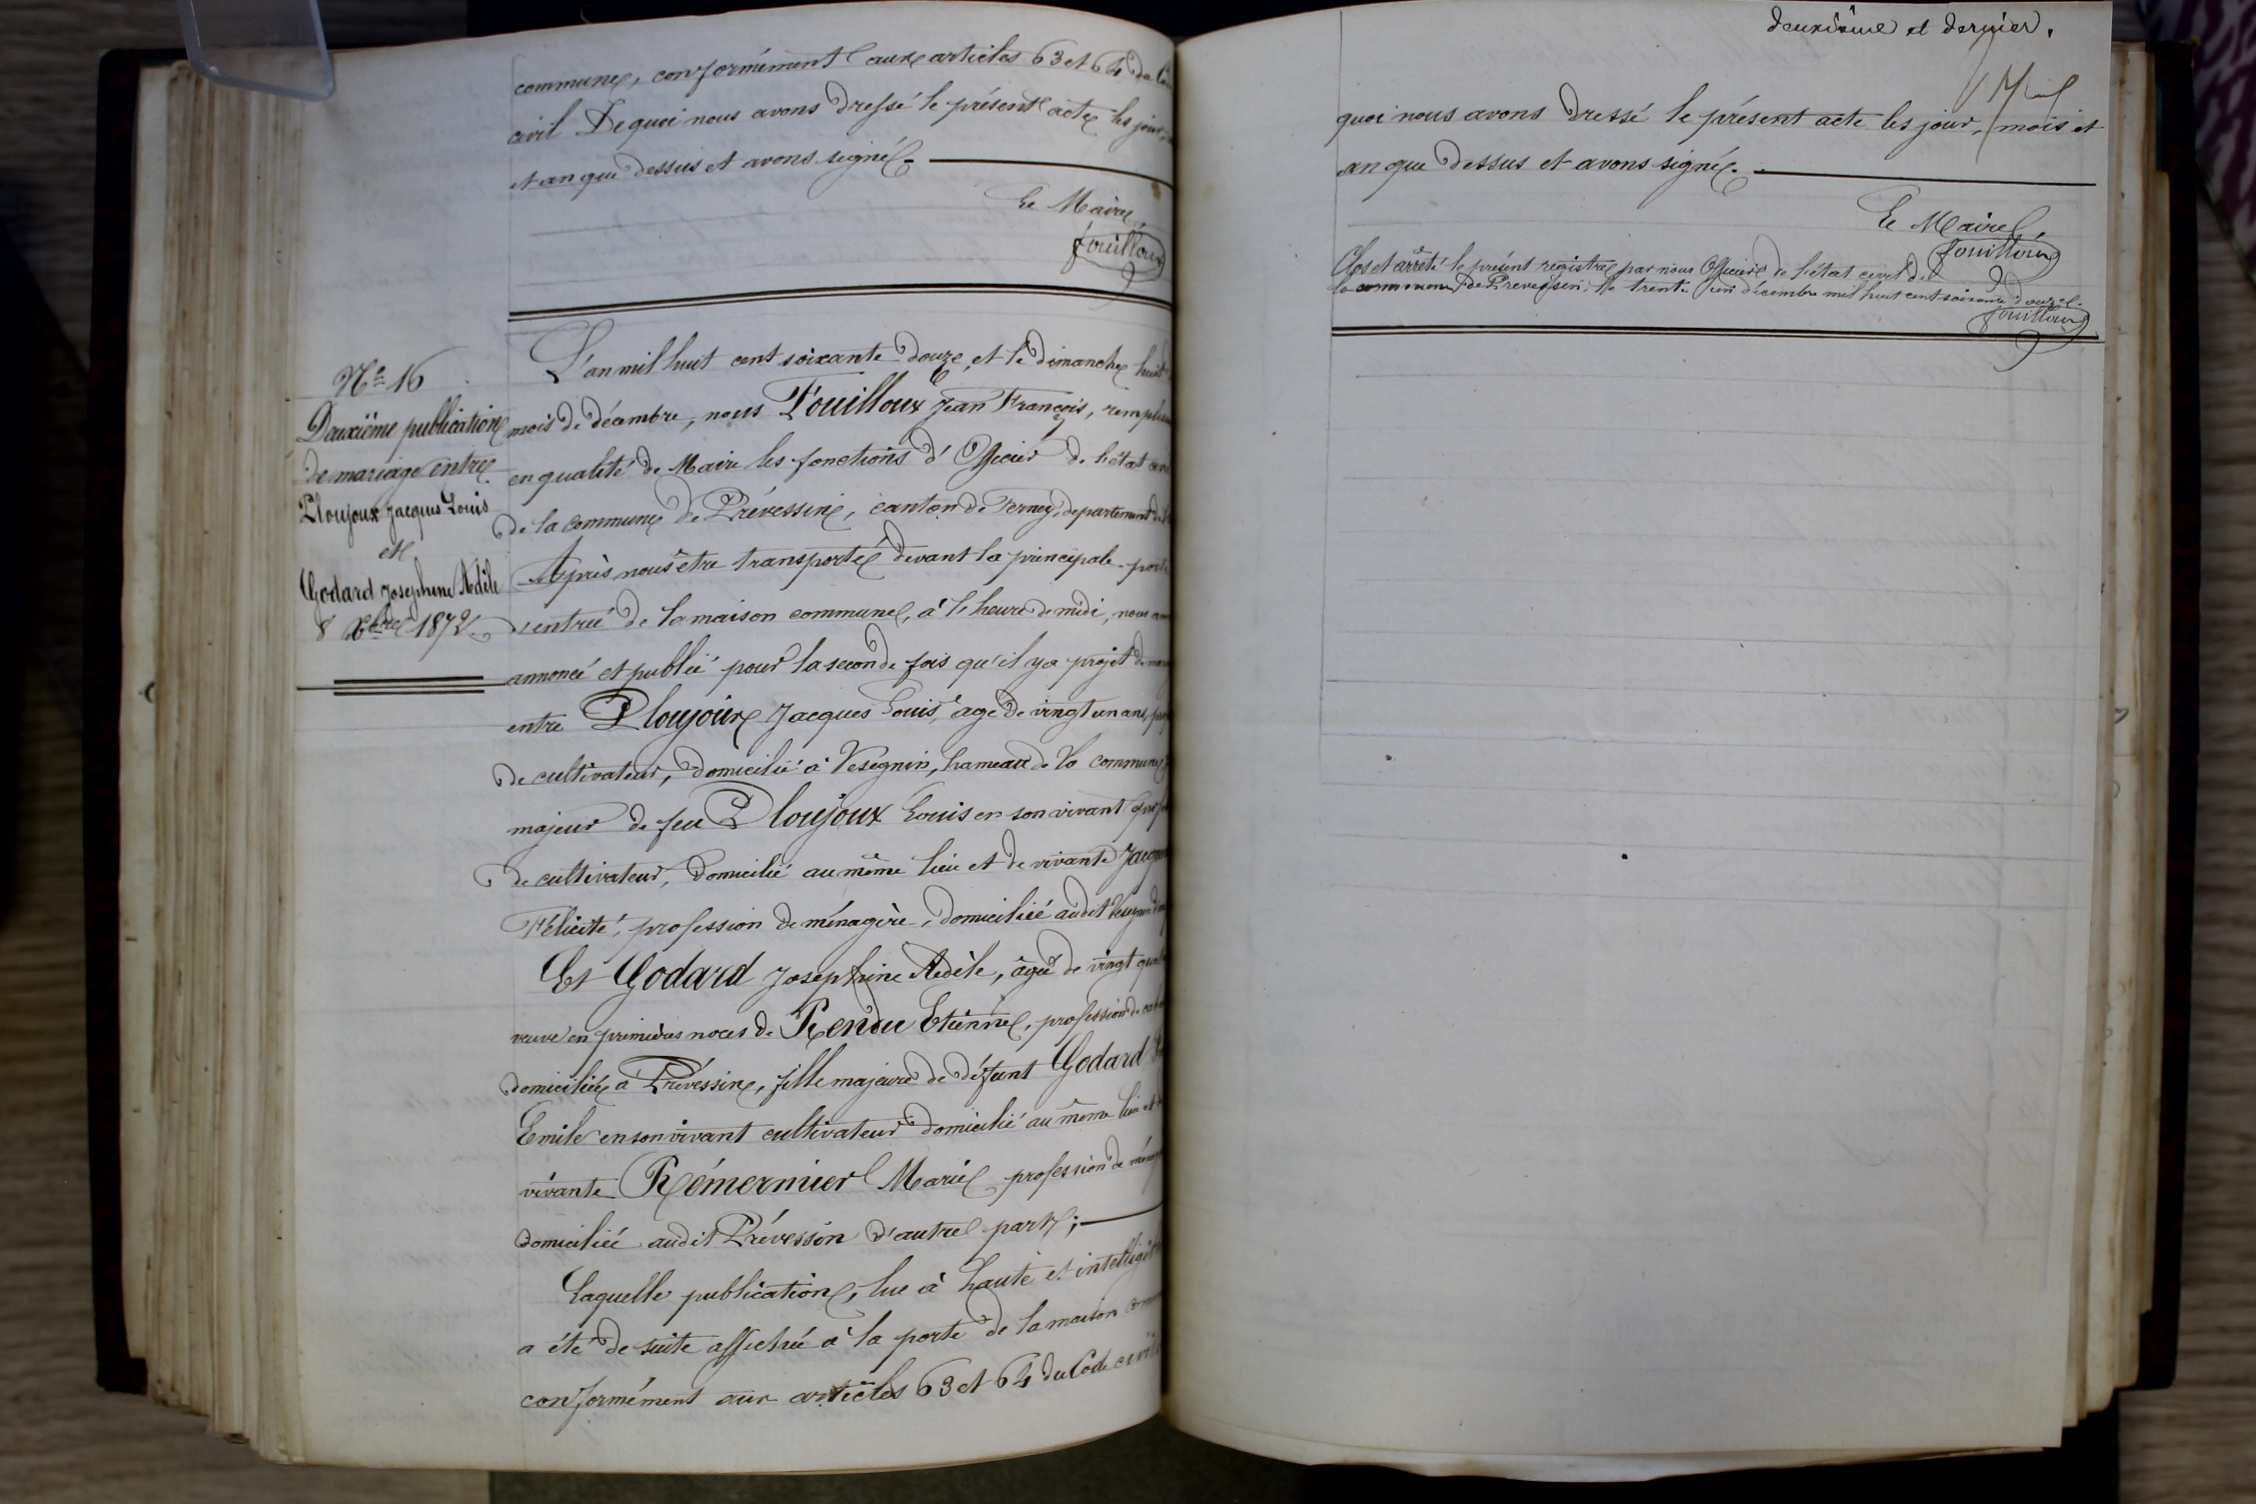 commune, conformément aux articles 63 et 64 du
civil De quoi nous avons dressé le présent acte les jour,
et an que dessus et avons signé.
Le Maire,
Fouilloux
Nº 16
Deuxième publication
de mariage entre
Ploujoux Jacques Louis
et
Godard Joséphine Adèle
8 Xbre 1872.
L'an mil huit cent soixante douze, et le dimanche huit
mois de décembre, nous Fouilloux Jean François,
en qualité de Maire les fonctions d'Officier de l'état
de la commune de Prévessin, canton de Ferney, département de
Après nous être transporté devant la principale porte
d'entrée de la maison commune, à l'heure de midi, nous
annoncé et publié pour la seconde fois qu'il y a projet de
entre Ploujoux Jacques Louis, âgé de vingt un ans,
de cultivateur, domicilié à Vésegnin, hameau de la commune
majeur de feu Ploujoux Louis en son vivant
de cultivateur, domicilié au même lieu et de vivante
Félicité, profession de ménagère, domiciliée audit Vésegnin
Et Godard Joséphine Adèle, âgée de vingt
veuve en premières noces de Rendu Etienne, profession de
domiciliée à Prévessin, fille majeure de défunt Godard
Emile en son vivant cultivateur domicilié au même lieu et
vivante Rémermier Marie profession de
domiciliée audit Prévessin d'autre part;
Laquelle publication, lue à haute et
a été de suite affichée à la porte de la maison
conformément aux articles 63 et 64 du Code civil
deuxième et dernier.
quoi nous avons dressé le présent acte les jour, mois et
an que dessus et avons signé.
Le Maire,
Fouilloux
Clos et arrêté le présent registre par nous Officier de l'état civil de
la commune de Prévessin, le trente un décembre mil huit cent soixante douze.
Fouilloux